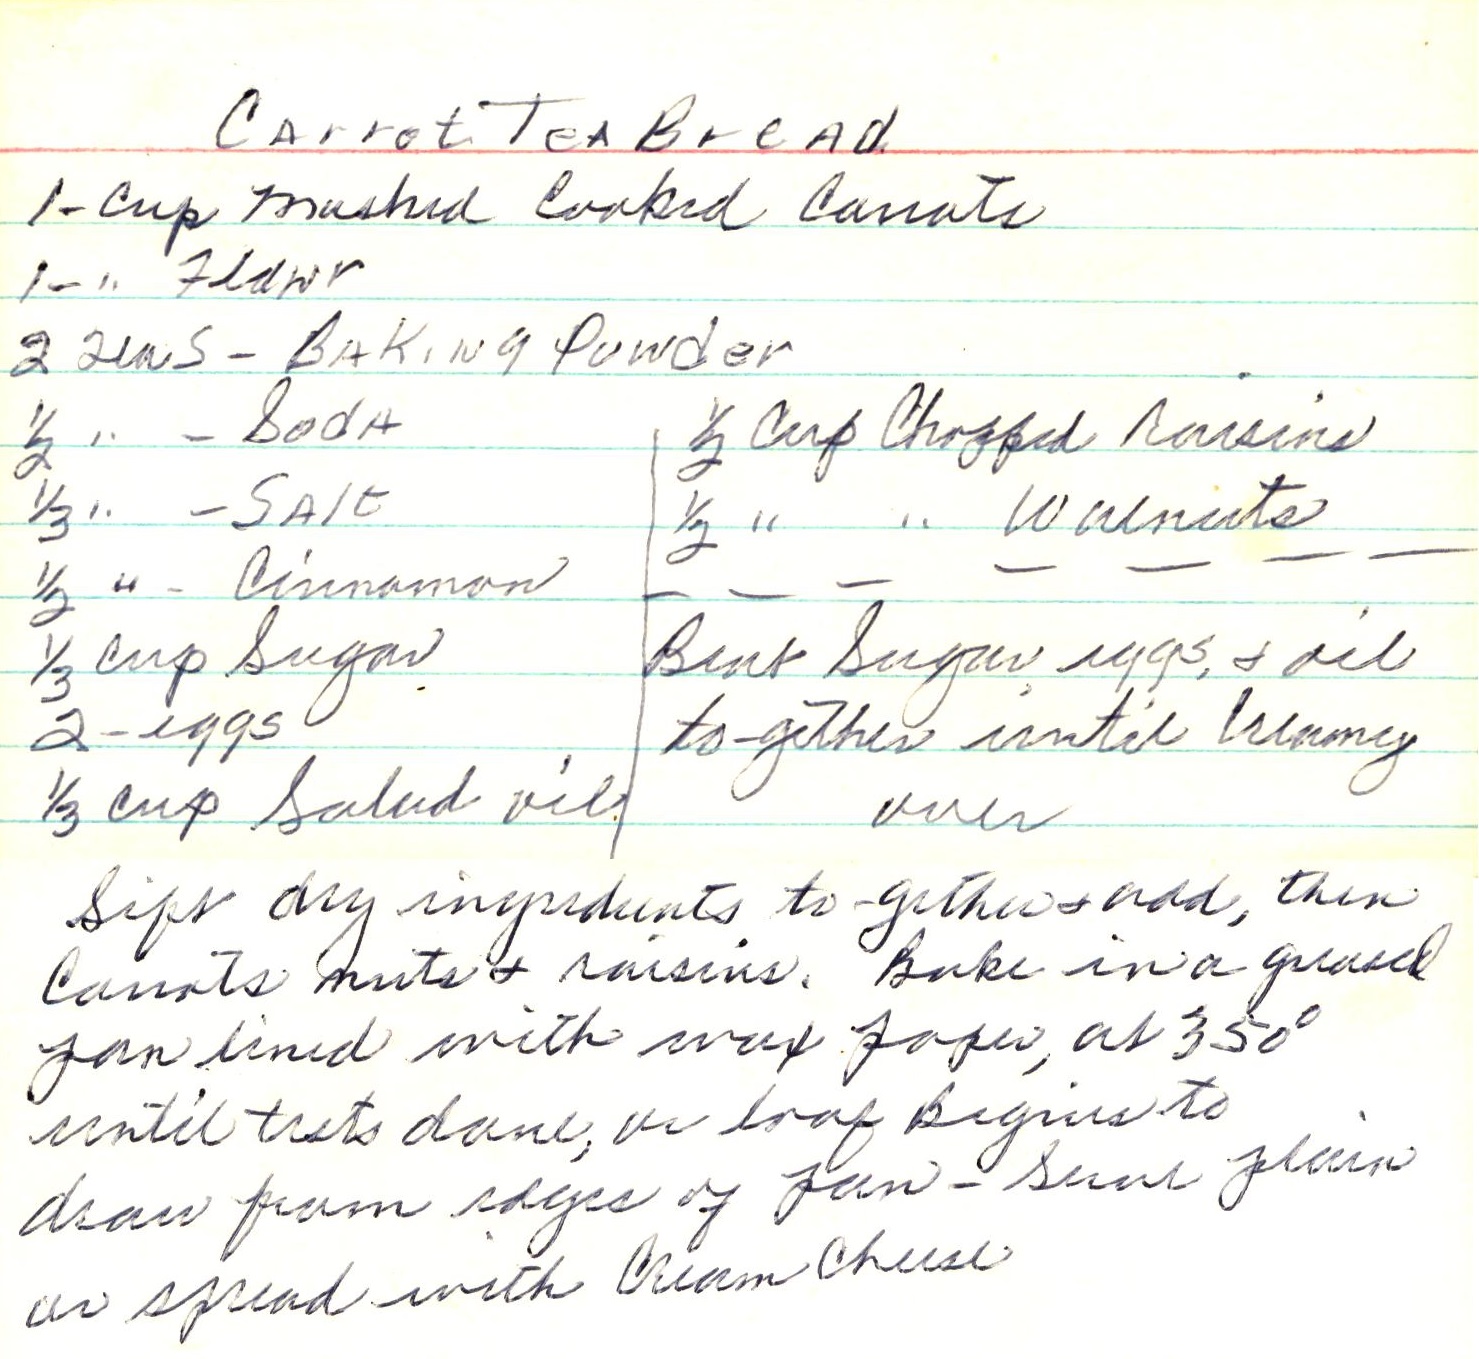 Carrot Tea Bread
1- Cup Mashed Cooked Carrots
1- " Flour
2 Teas - Baking Powder
1/2 " - Soda
1/3 " - Salt
1/2 " - Cinnamon
1/3 Cup Sugar
2 - eggs
1/3 Cup Salad oil
1/2 Cup Chopped raisins
1/2 " " Walnuts
Beat Sugar, eggs, & oil
to-gether until Creamy
over
Sift dry ingredients to-gether & add, then
Carrots nuts & raisins. Bake in a greased
pan lined with wax paper, at 350°
until tests done, or loaf Begins to
draw from edges of pan - Serve plain
or spread with Cream Cheese